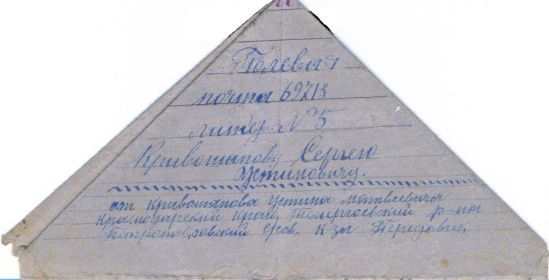 Полевая
почта 69713
литер № 5
Кривошапову Сергею
Устиновичу.
от Кривошапова Устина Матвеевича
Краснодарский край, Темиргоевский р-на
Петропавловский с/сов. к-за Передовик.